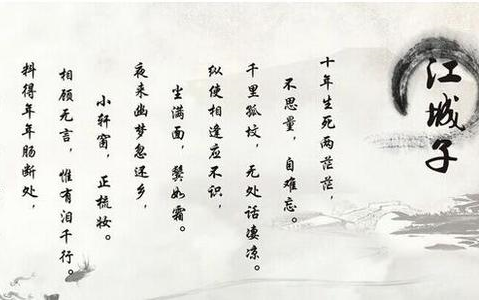 江城子
十年生死两茫茫，
不思量，自难忘。
千里孤坟，无处话凄凉。
纵使相逢应不识，
尘满面，鬓如霜。
夜来幽梦忽还乡，
小轩窗，正梳妆。
相顾无言，惟有泪千行。
料得年年肠断处，